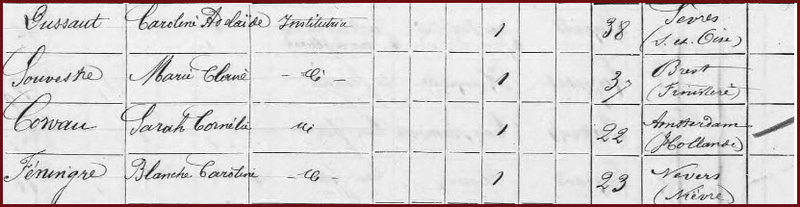 Dussaut Caroline Adelaïde Institutrice 1 38 Sèvres
(S. et Oise)
Souvestre Marie Claire — id — 1 37 Brest
(Finistère)
Cowau Sarah Cornélia id 1 22 Amsterdam
(Hollande)
Féningre Blanche Caroline — id — 1 23 Nevers
(Nièvre)